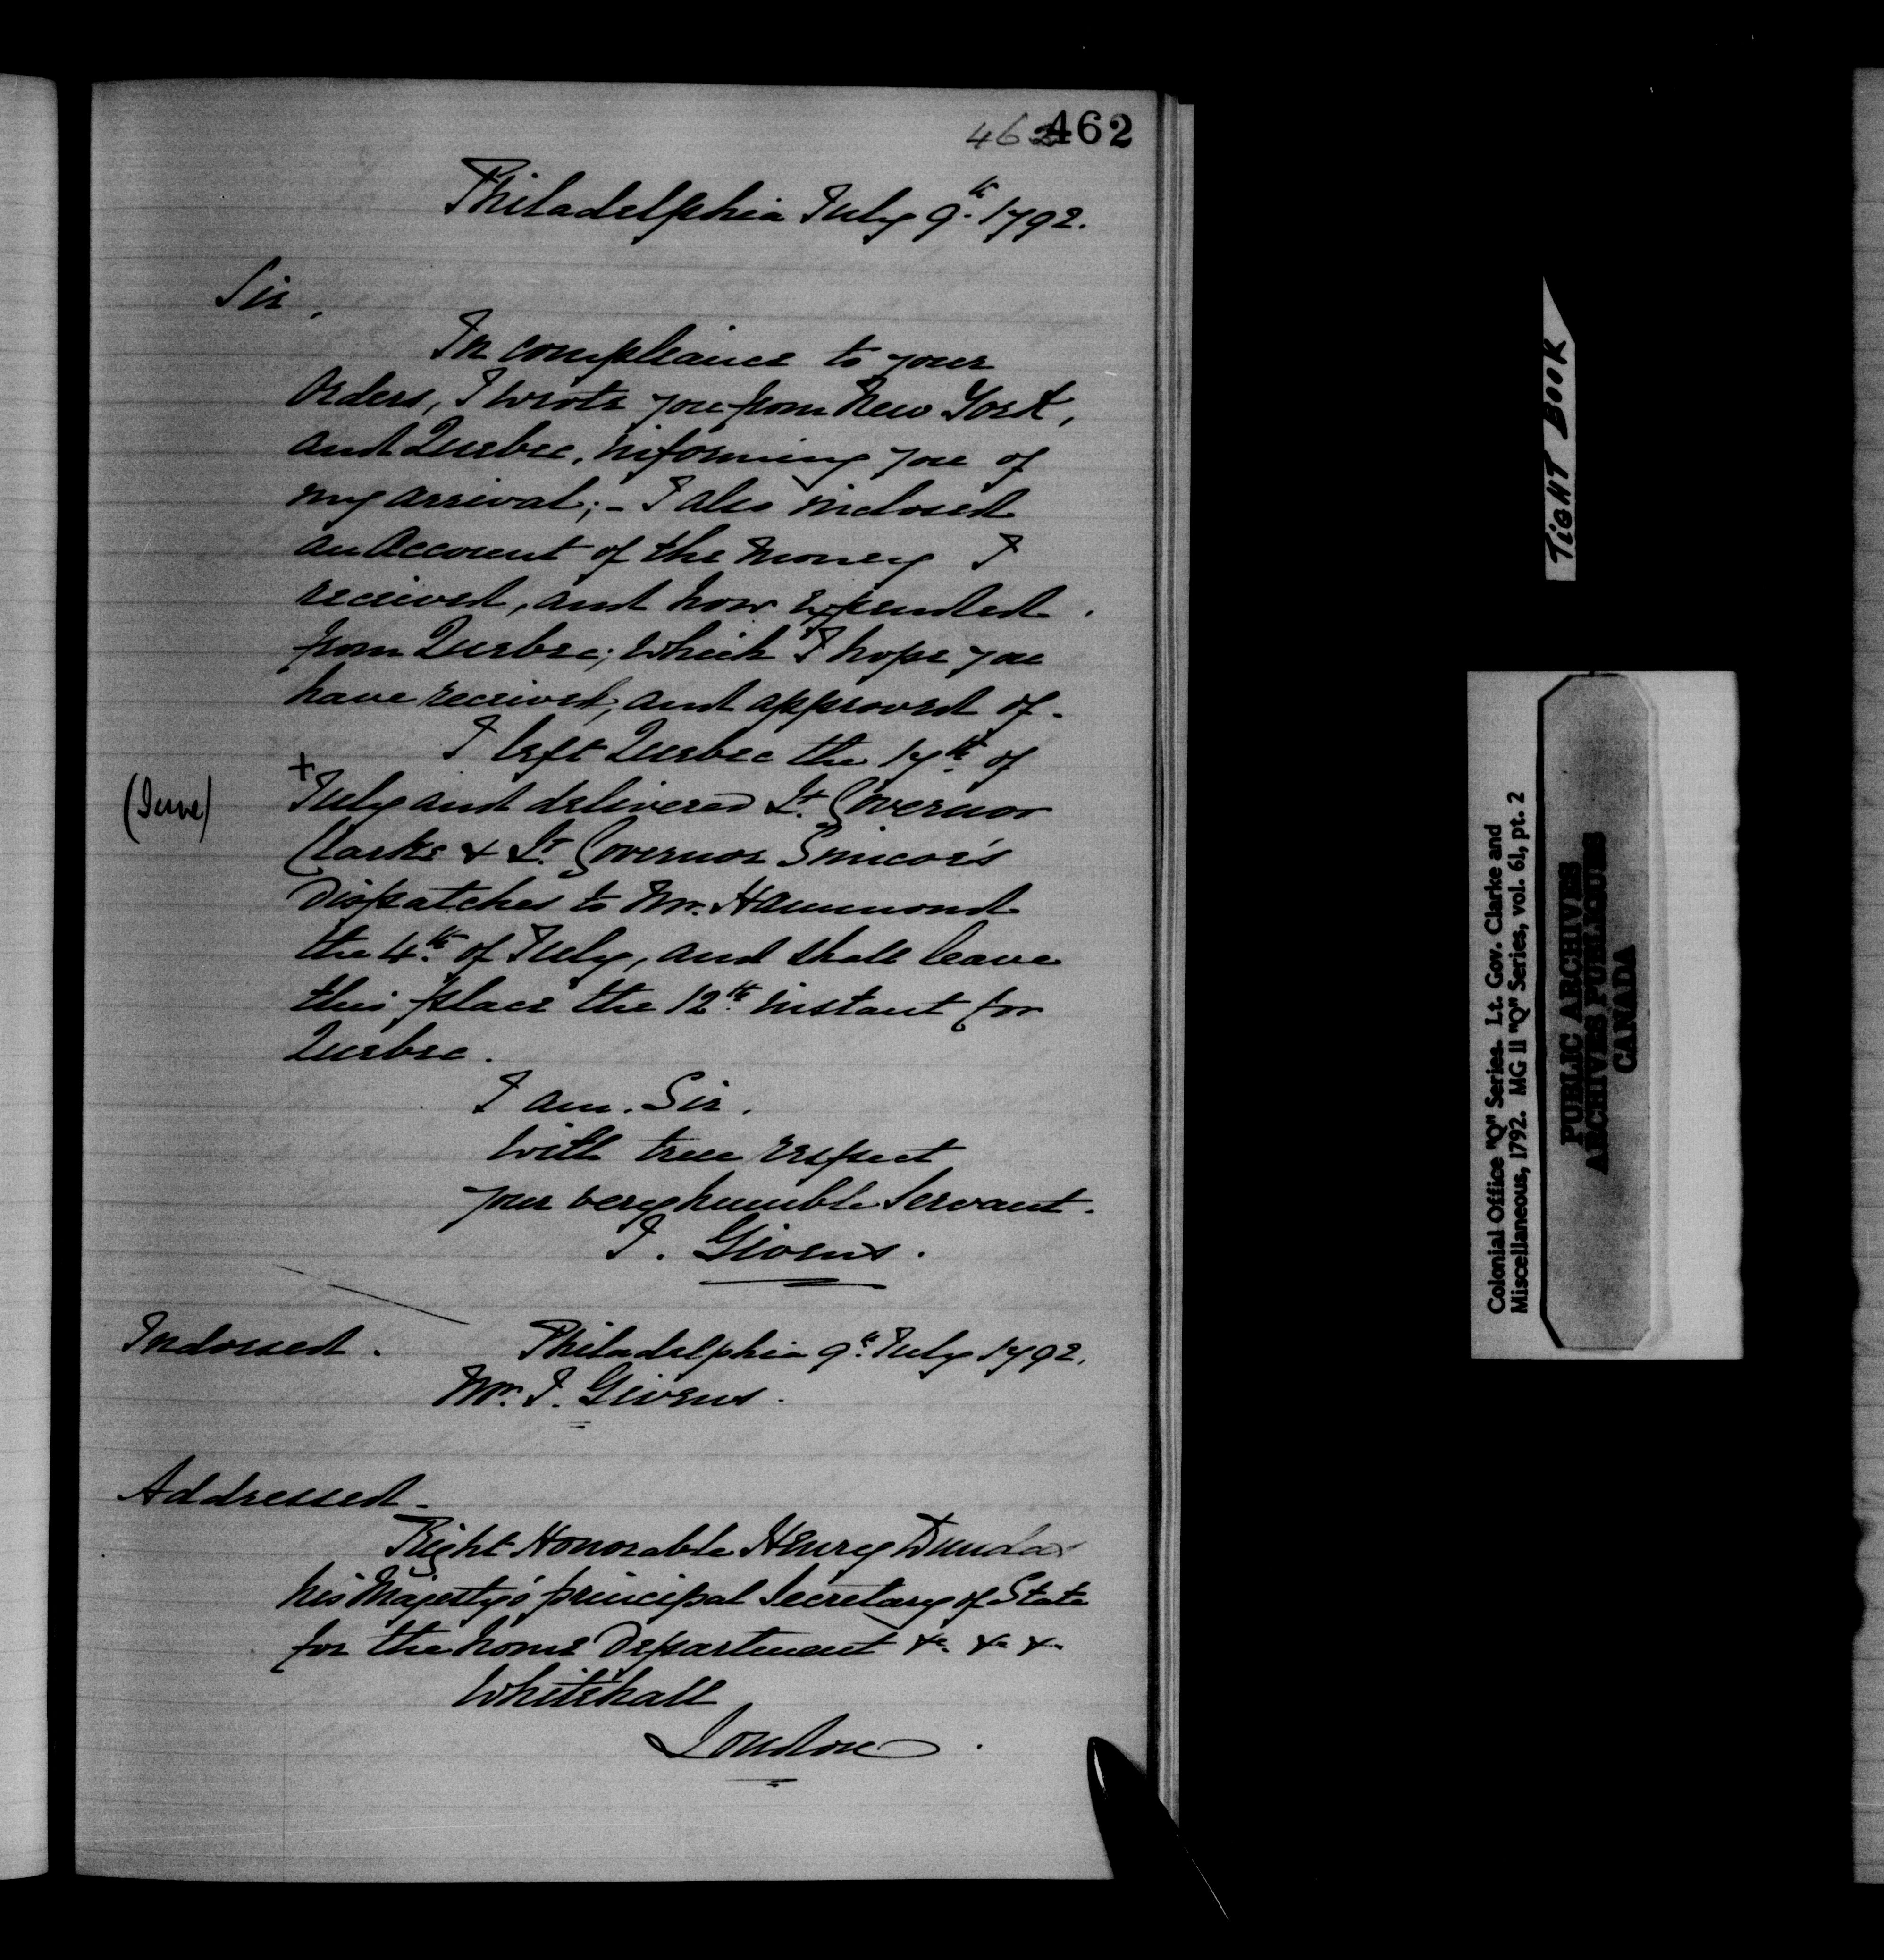 462 462
Philadelphia July 9th. 1792.
Sir,
In compliance to your
Orders, I wrote you from New York,
and Quebec, informing you of
my arrival; - I also inclosed
an Account of the Money I
received, and how expended.
from Quebec; which I hope you
have received, and approved of.
I left Quebec the 17th. of
(June) + July and delivered Lt. Governor
Clarke & Lt. Governor Simcoe's
Dispatches to Mr. Hammond
the 4th. of July, and shall leave
this place the 12th. instant for
Quebec.
I am. Sir.
With true respect
your very humble Servant.
J. Givens.
Indorsed. Philadelphia 9th. July 1792.
Mr. J. Givens.
Addressed.
Right Honorable Henry Dundas
his Majesty's principal Secretary of State
for the home Department &c. &c &c
Whitehall
London.
TIGHT BOOK
Colonial Office "Q" Series. Lt. Gov. Clarke and
Miscellaneous, 1792. MG 11 "Q" Series, vol. 61, pt. 2
PUBLIC ARCHIVES
ARCHIVES PUBLIQUES
CANADA